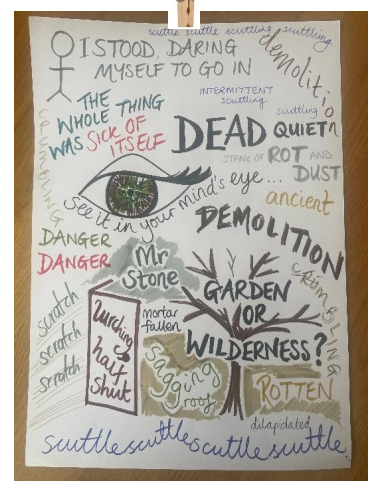 scuttle scuttle scuttling scuttling
I STOOD, DARING
MYSELF TO GO IN
demolition
THE
WHOLE THING
WAS SICK OF
ITSELF
INTERMITTENT
scuttling
scuttling
DEAD QUIET
STANK OF ROT AND
DUST
CRUMBLING
see it in your mind's eye...
ancient
DEMOLITION
DANGER
DANGER
Mr
Stone
CRUMBLING
scratch
scratch
scratch
lurching
half
shut
mortar
fallen
GARDEN
OR
WILDERNESS?
sagging
roof
ROTTEN
dilapidated
scuttlescuttlescuttlescuttle